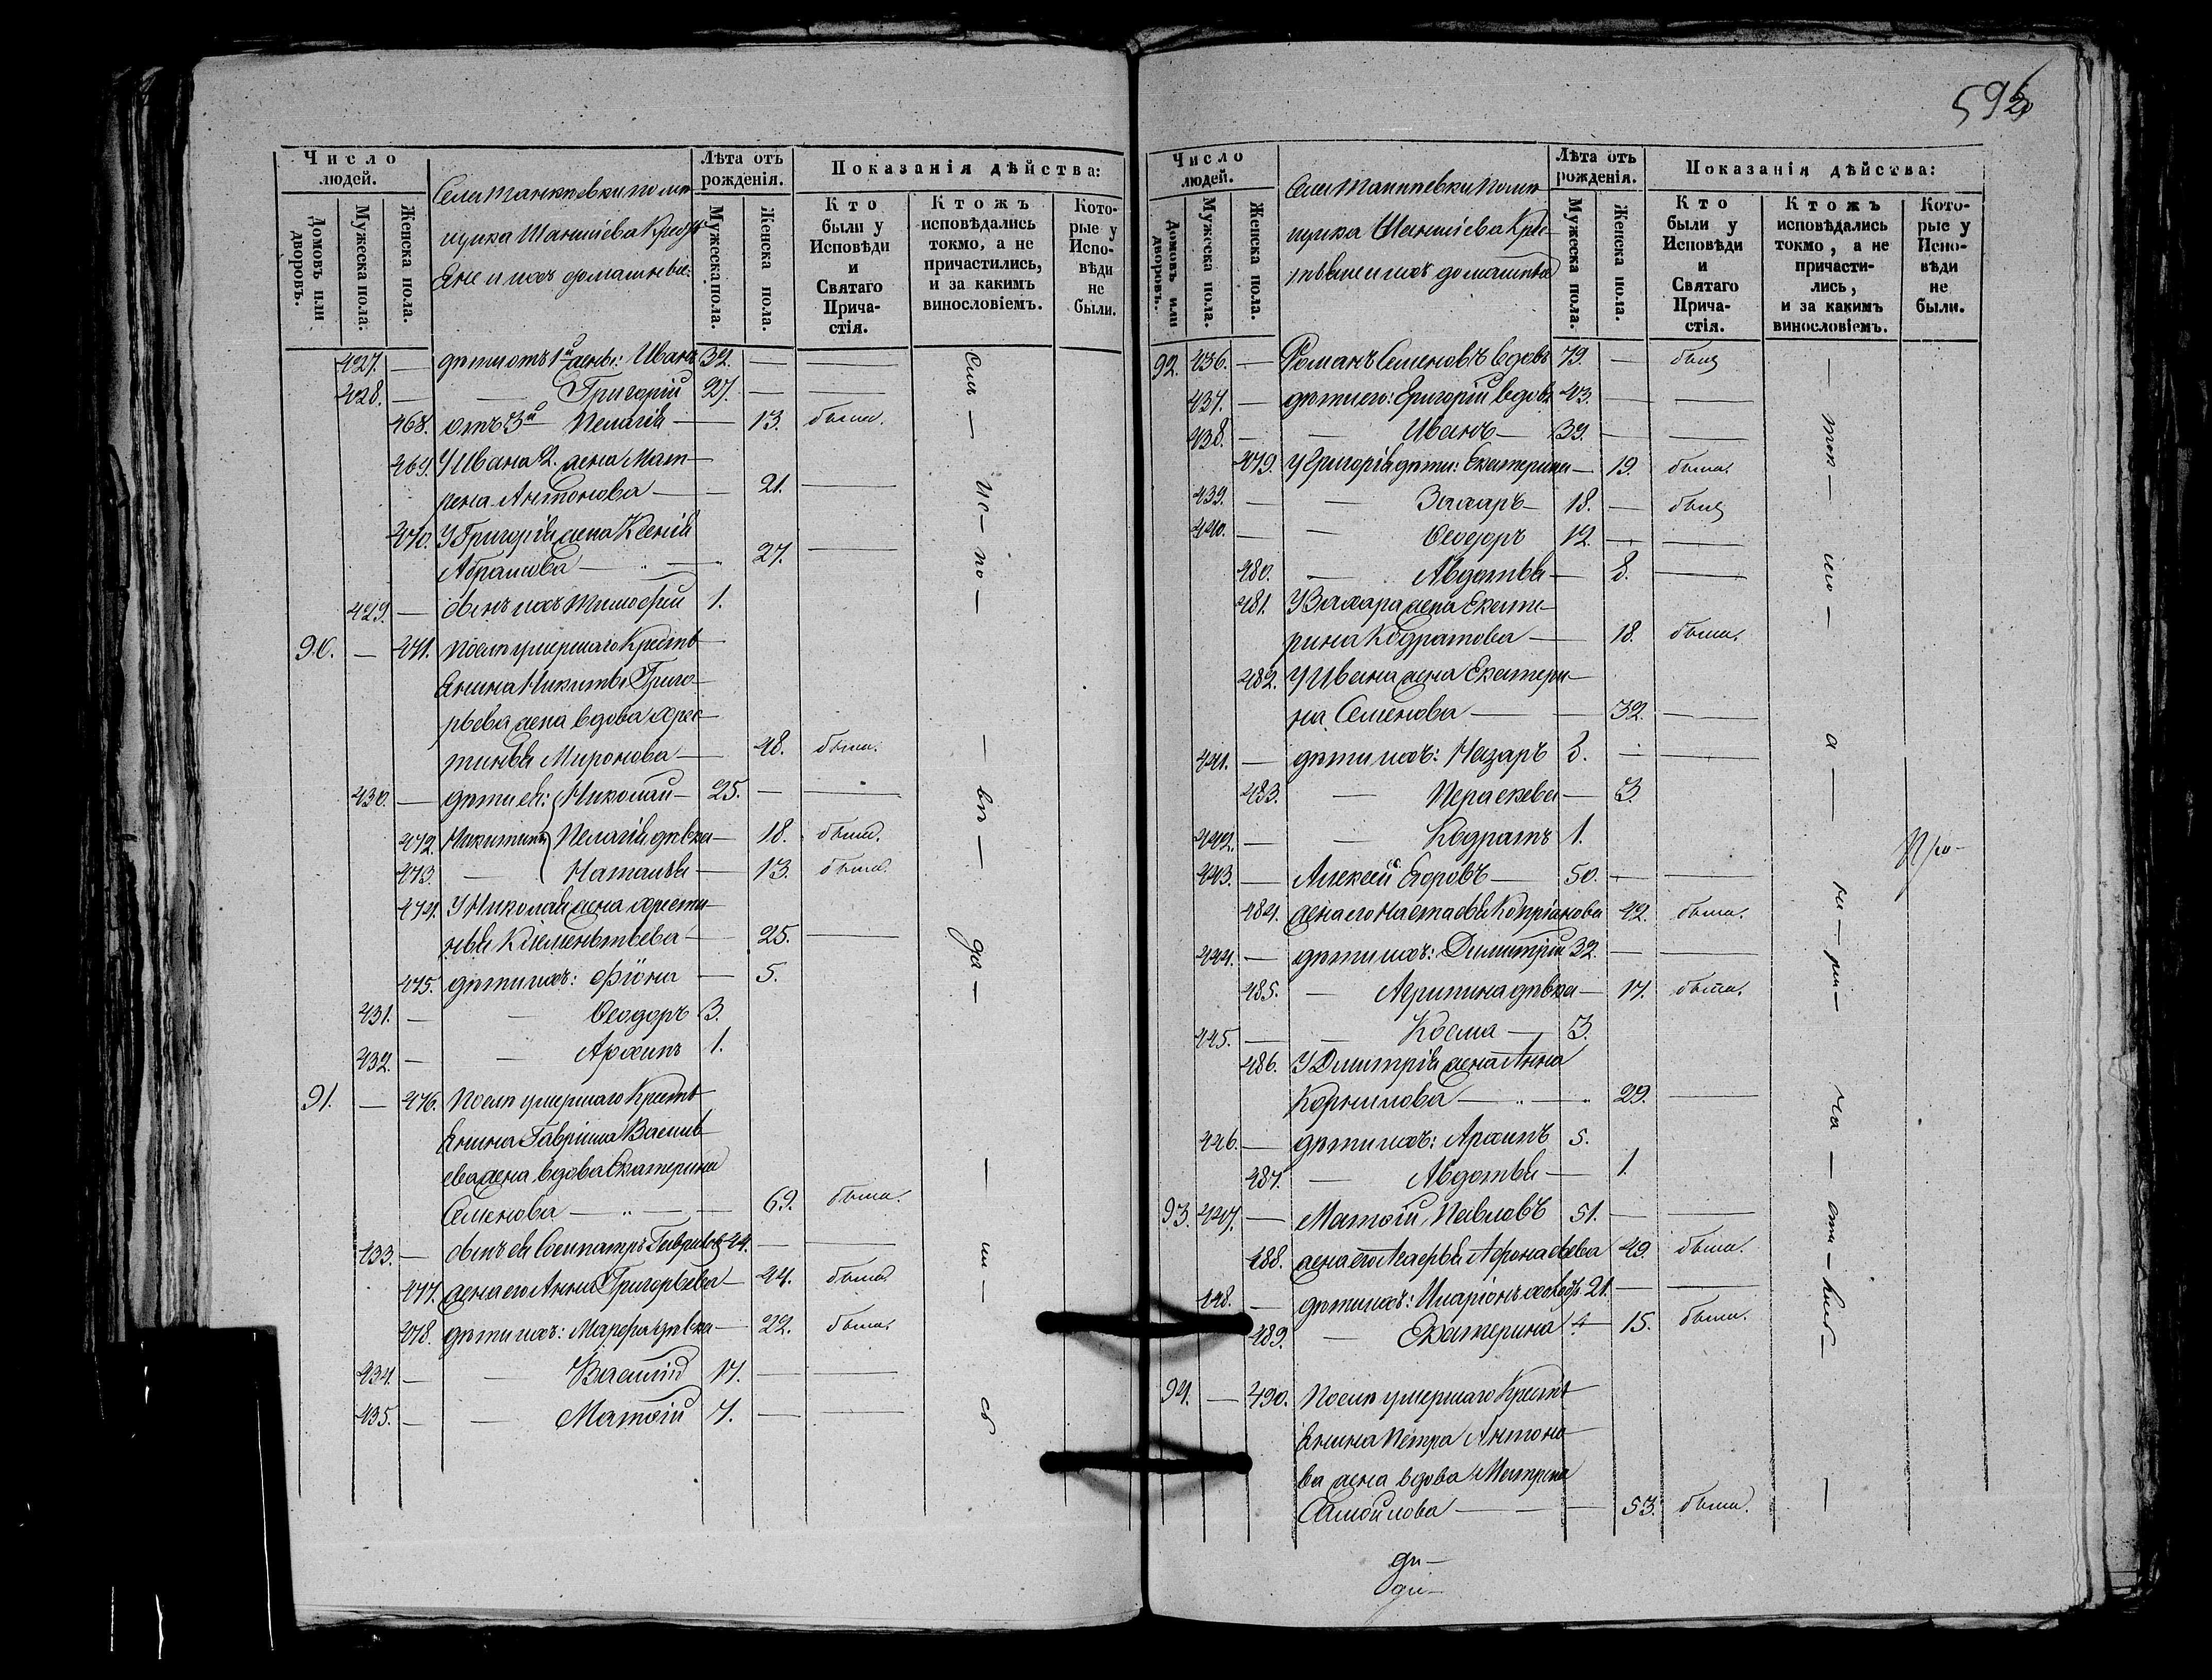 592
Число людей.
Домовъ или дворовъ.
Мужеска пола.
Женска пола.
Лѣта отъ рожденія.
Мужеска пола.
Женска пола.
Показанія дѣйства:
Кто были у Исповѣди и Святаго Причастія.
Ктожъ исповѣдались токмо, а не причастились, и за какимъ винословіемъ.
Которые у Исповѣди не были.
427. — дѣти отъ 1й жены: Иванъ 32. — —
428. — — Григорій 27. — —
468. отъ 3й Пелагія — 13. была.
469. У Ивана 2. жена Мат-
рена Антонова — — 21. —
470. У Григорія жена Ксенія
Абрамова — — 27. —
429. — сынъ ихъ Тимофей 1.
90. — 471. Послѣ умершаго Кресть-
янина Никиты Григо-
рьева жена вдова Хрис-
тинья Миронова — 48. была.
430. — дѣти ея: Николай — 25. — —
472. Никитины Пелагія дѣвка — 18. была.
473. — Наталья — 13. была.
474. У Николая жена Христи-
нья Клементьева — 25. —
475. дѣти ихъ: Фіона — 5.
431. — — Ѳеодоръ 3.
432. — — Архипъ 1.
91. — 476. Послѣ умершаго Кресть-
янина Гавріила Василь-
ева жена вдова Екатерина
Семенова — — 69. была.
433. — сынъ ея Сосипатръ Гавриловъ 44. — —
477. жена его Анна Григорьева — 44. была.
478. дѣти ихъ: Марфа дѣвка — 22. была.
434. — — Василій 17. — —
435. — — Матѳій 7. — —
Число людей.
Домовъ или дворовъ.
Мужеска пола.
Женска пола.
Лѣта отъ рожденія.
Мужеска пола.
Женска пола.
Показанія дѣйства:
Кто были у Исповѣди и Святаго Причастія.
Ктожъ исповѣдались токмо, а не причастились, и за какимъ винословіемъ.
Которые у Исповѣди не были.
92. 436. — Романъ Семеновъ вдовъ 79. — былъ
437. — дѣти его: Григорій вдовъ 43. — —
438. — — Иванъ — 39. — —
479. У Григорія дѣти: Екатерина — 19. была.
439. — — Захаръ — 18. — былъ
440. — — Ѳеодоръ 12. — —
480. — Авдотья — 8. —
481. У Захара жена Екате-
рина Кодратова — 18. была.
482. У Ивана жена Екатери-
на Семенова — — 32. —
441. — дѣти ихъ: Назаръ 8. — —
483. — Параскева — 3.
442. — — Кодратъ 1.
443. — Алексѣй Егоровъ — 50. — —
484. жена его Настасья Копріанова 42. была.
444. — дѣти ихъ: Димитрій 32. — —
485. — Агрипина дѣвка — 17. была.
445. — — Косма — 3.
486. У Димитрія жена Анна
Корнилова — — 29. —
446. — дѣти ихъ: Архипъ 5.
487. — Авдотья — 1.
93. 447. — Матѳій Павловъ 51. — —
488. жена его Агафья Афонасьева 49. была.
448. — дѣти ихъ: Иларіонъ 21. — —
489. — Екатерина — 15. была.
94. — 490. Послѣ умершаго Кресть-
янина Петра Антоно-
ва жена вдова Матрена
Самойлова — — 53. была.